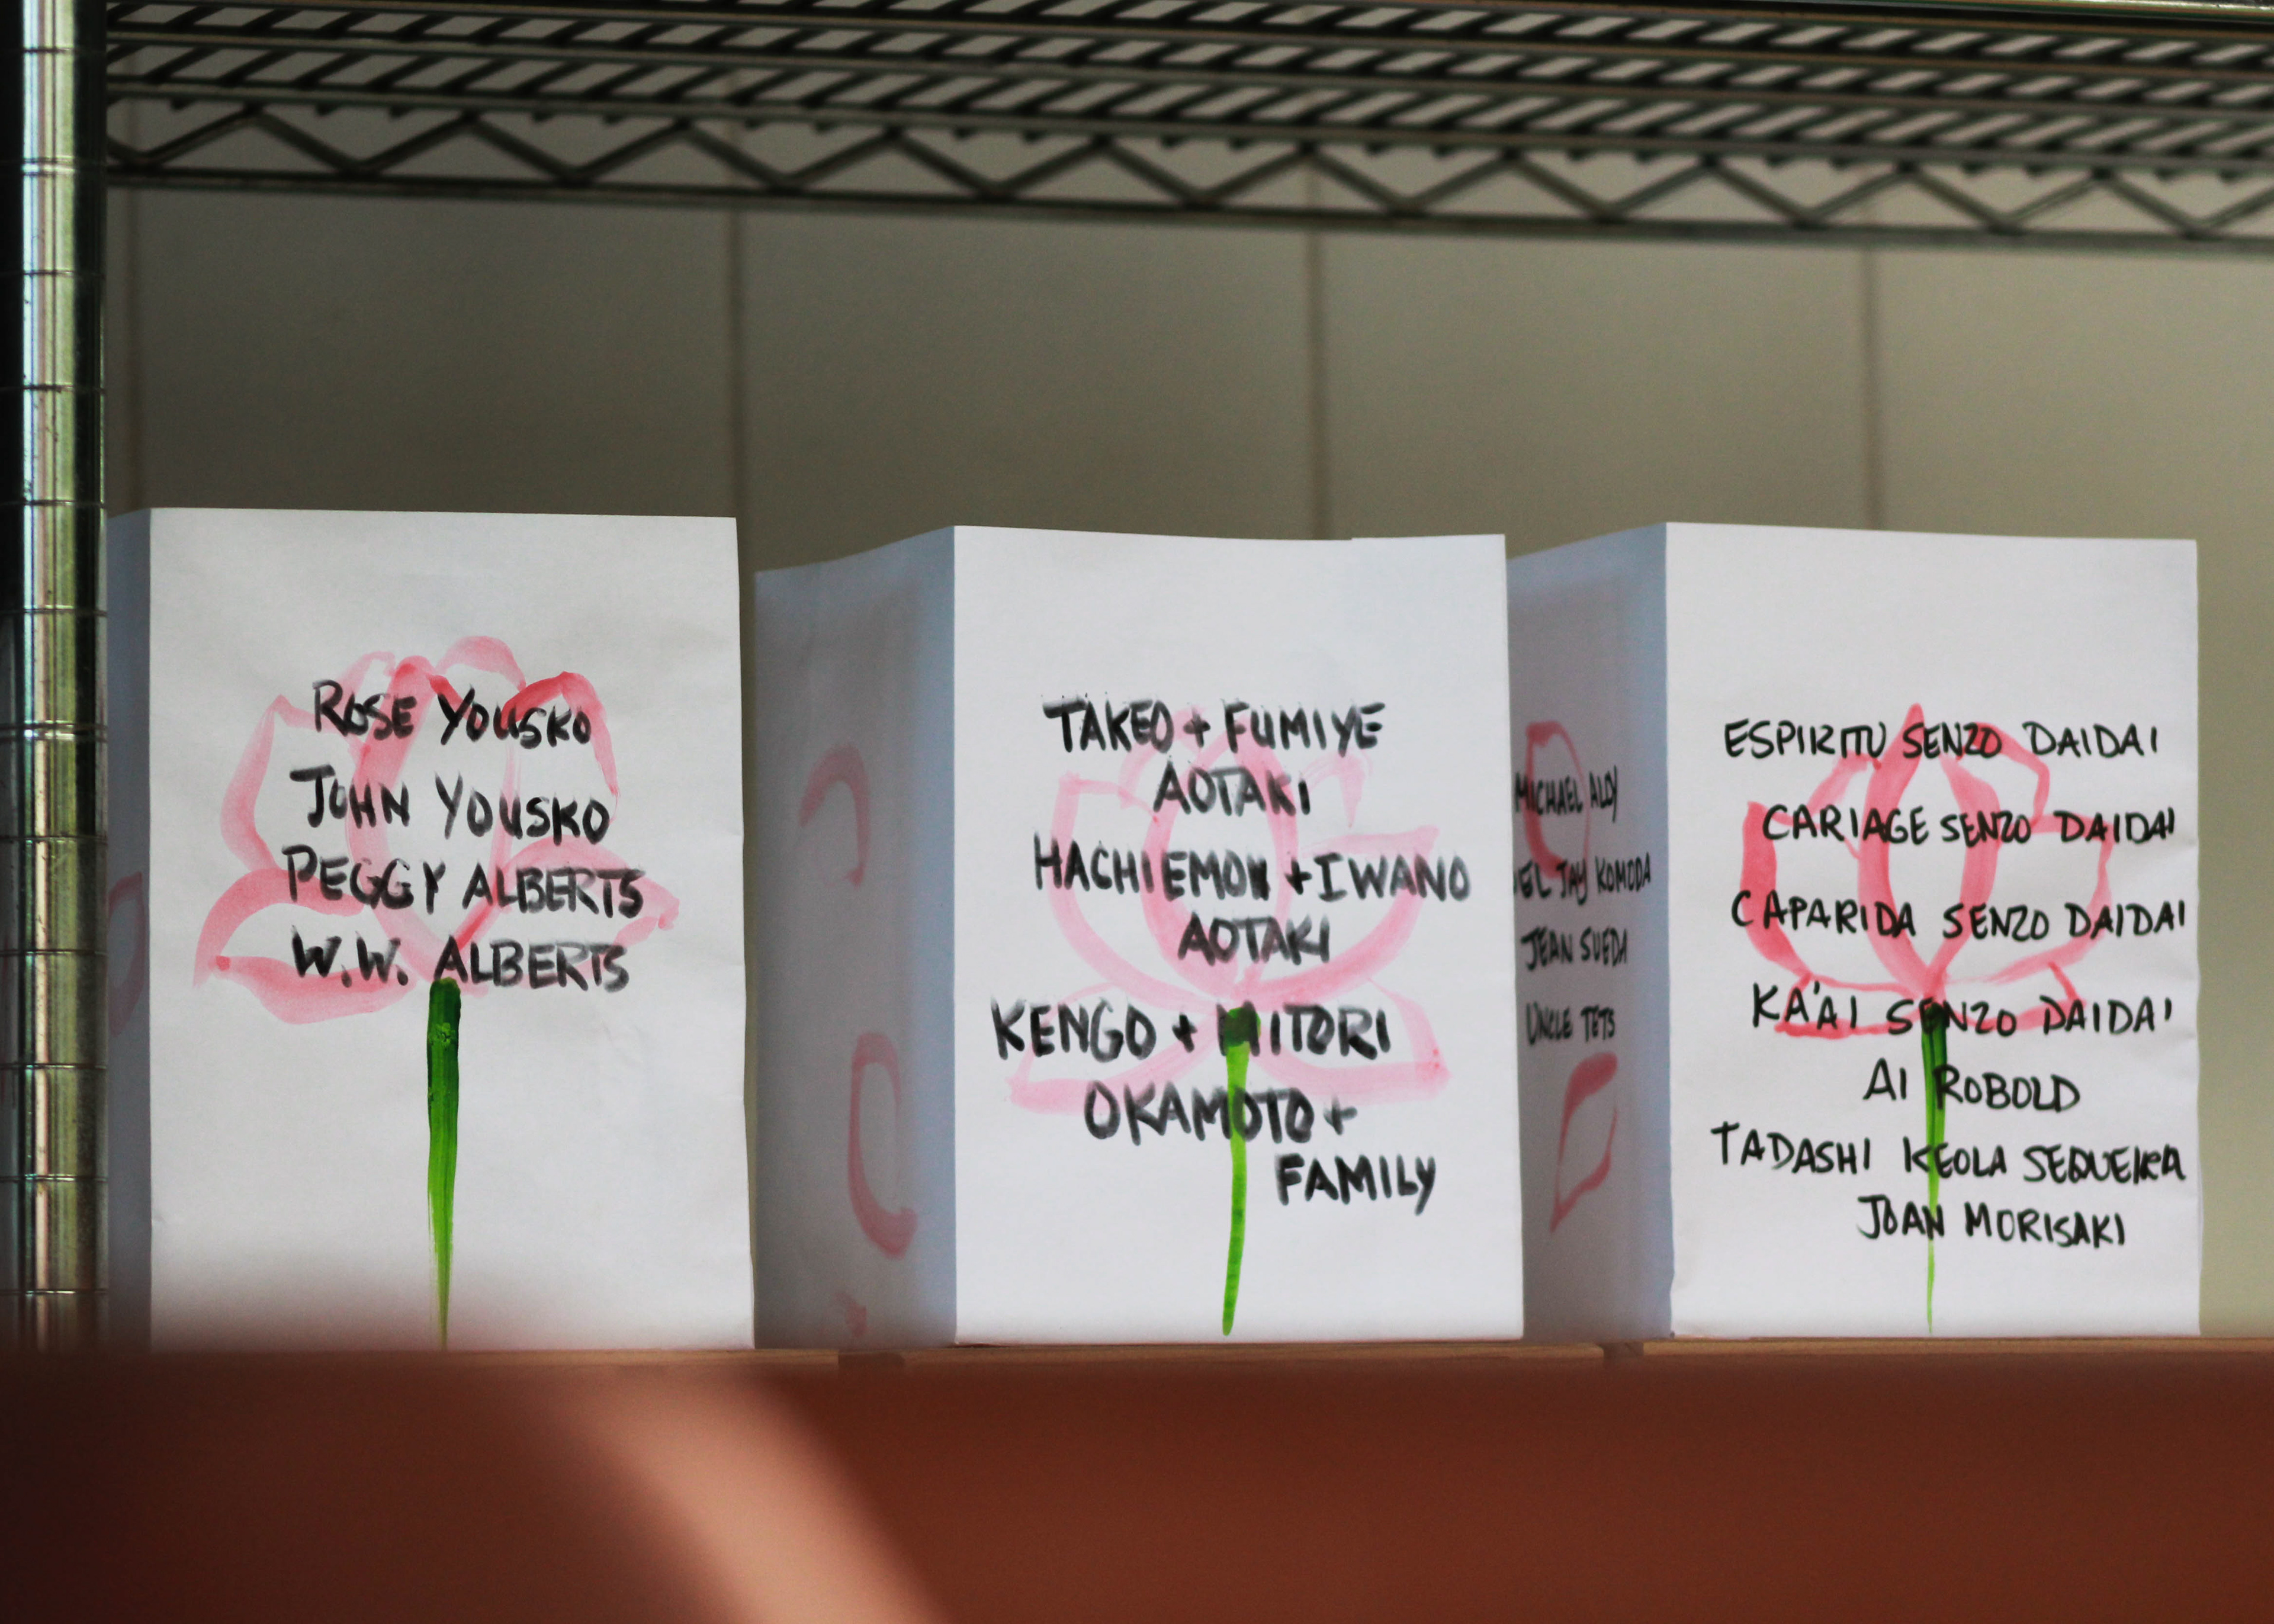 ROSE YOUSKO
JOHN YOUSKO
PEGGY ALBERTS
W.W. ALBERTS
TAKEO + FUMIYE
AOTAKI
HACHIEMON + IWANO
AOTAKI
KENGO + MITORI
OKAMOTO +
FAMILY
MICHAEL
JAY KOMODA
JEAN SUEDA
UNCLE TETS
ESPIRITU SENZO DAIDAI
CARIAGE SENZO DAIDAI
CAPARIDA SENZO DAIDAI
KA'AI SENZO DAIDAI
AI ROBOLD
TADASHI KEOLA SEQUEIRA
JOAN MORISAKI